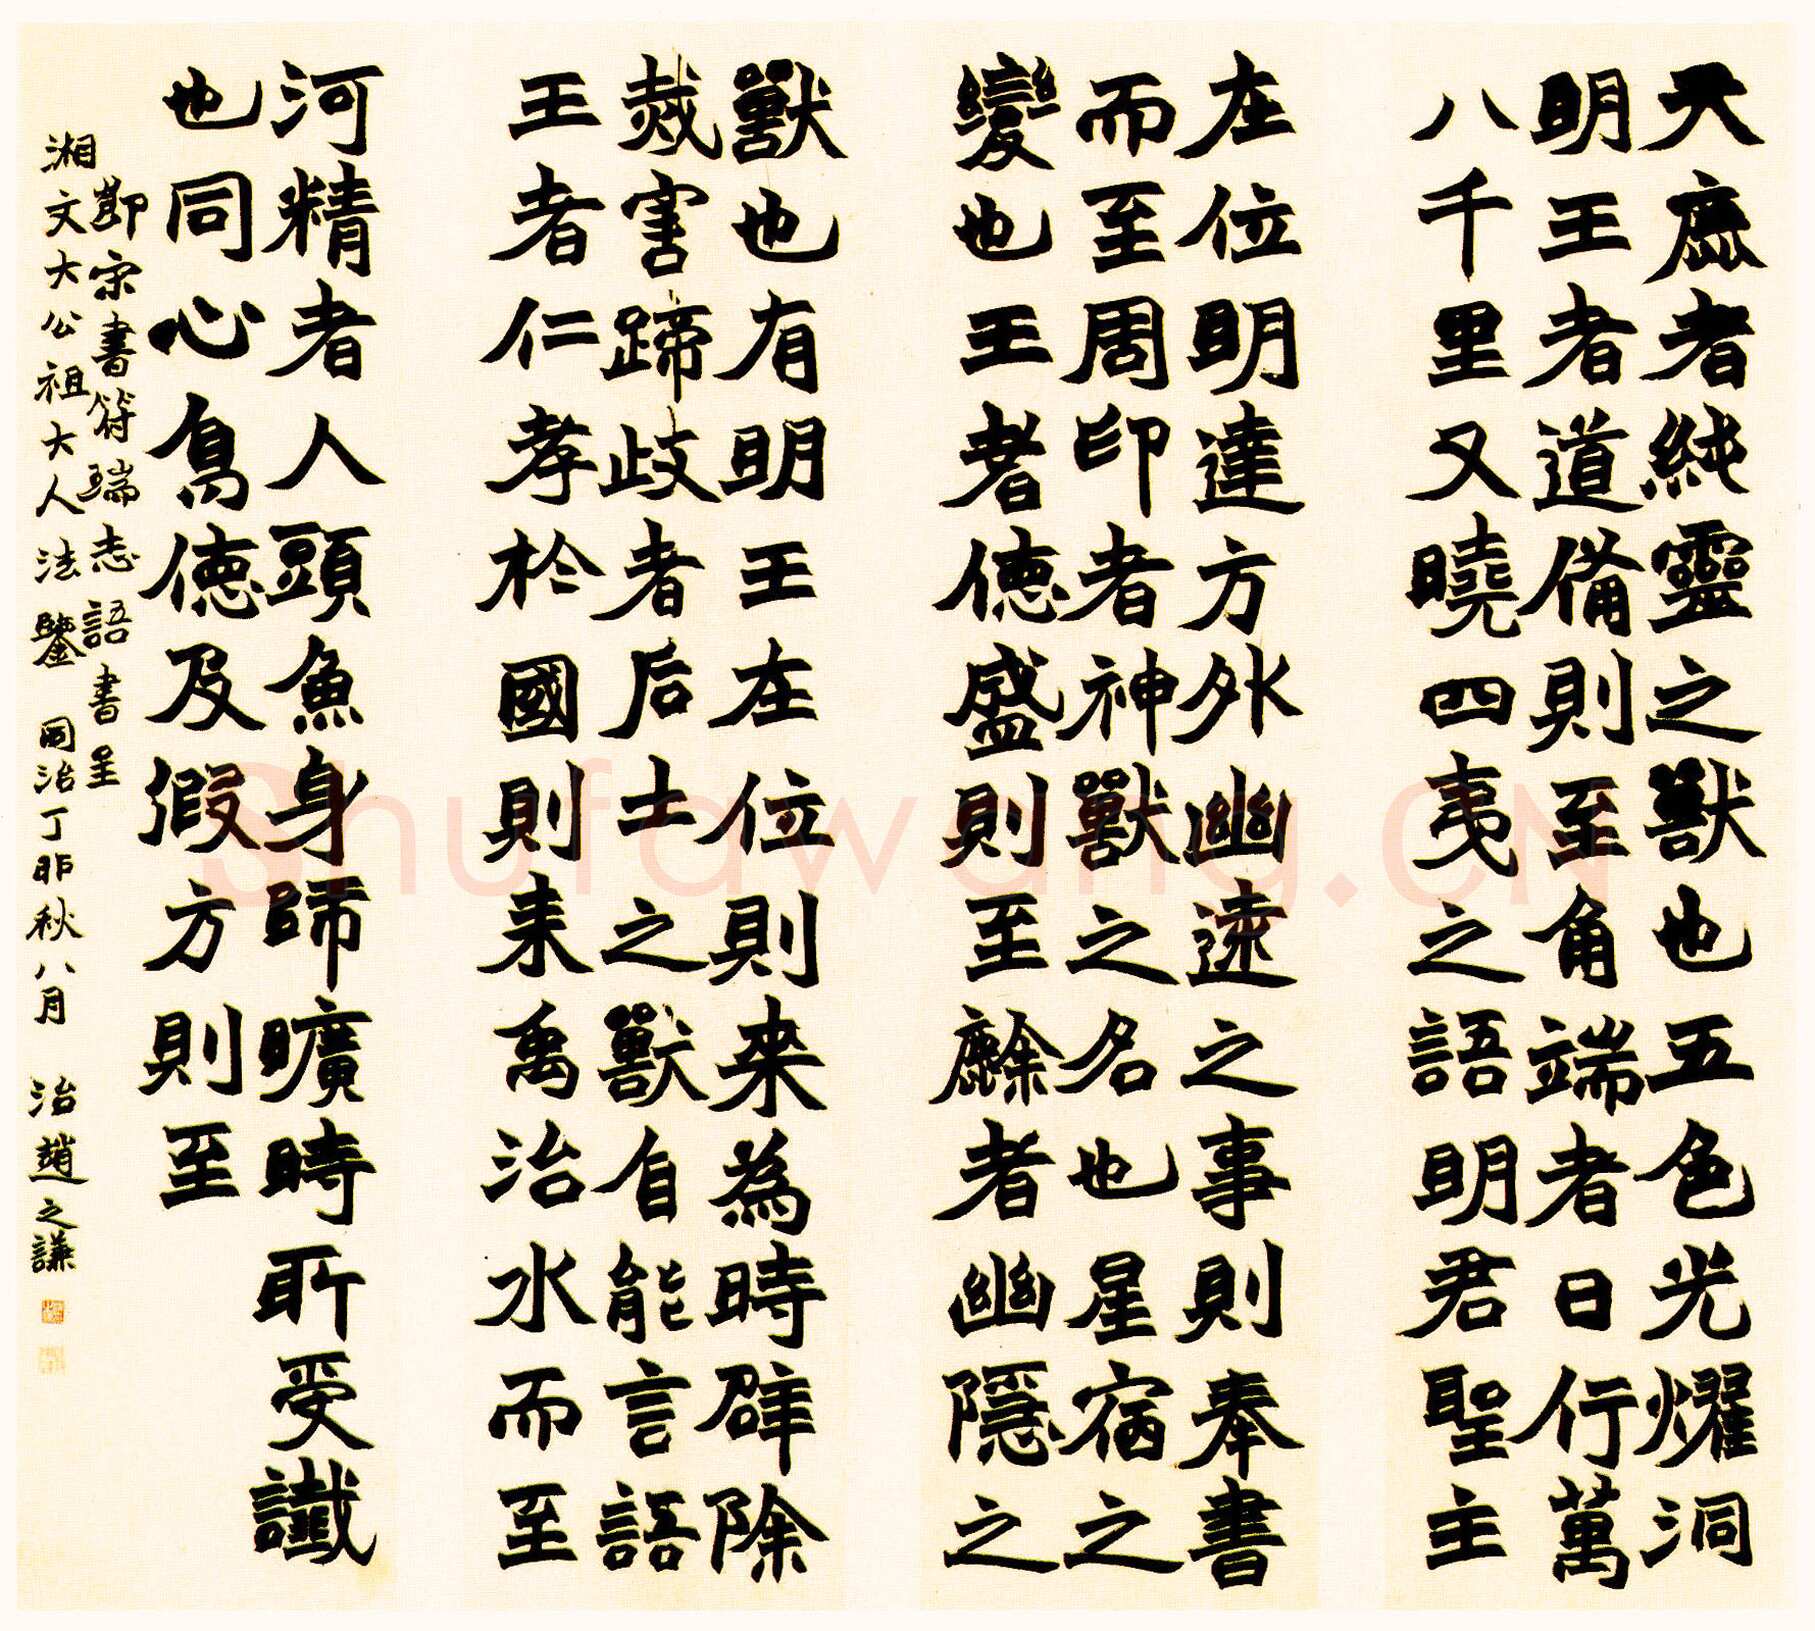 天鹿者純靈之獸也五色光燿洞
明王者道備則至角端者日行萬
八千里又曉四夷之語明君聖主
在位明達方外幽遠之事則奉書
而至周印者神獸之名也星宿之
變也王者德盛則至麤者幽隱之
獸也有明王在位則来為時辟除
烖害蹄歧者后土之獸自能言語
王者仁孝於國則来禹治水而至
河精者人頭魚身師曠時所受讖
也同心鳥德及假方則至
節宋書符瑞志語書呈
湘文大公祖大人法鑒 同治丁卯秋八月 治趙之謙
Shufawang.CN